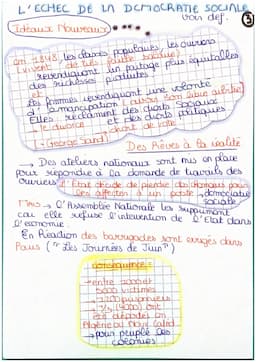 L'ECHEC DE LA DEMOCRATIE SOCIALE
voir def.
3
Idéaux Nouveaux
en 1848, les classes populaires, les ouvriers
revendiquent un partage plus équitables
des richesses produites !
Les femmes revendiquent une volonté
d'émancipation
Elles réclament des droits sociaux
et des droits politiques
→ le divorce
→ droit de vote
(→ George Sand)
Des Rêves à la réalité
→ Des ateliers nationaux sont mis en place
pour répondre à la demande de travails des
ouvriers
l'Etat décide de prendre des chômeurs pour
les affecter à un poste → démocratie
sociale
Mais → l'Assemblée Nationale les suppriment
car elle refuse l'intervention de l'Etat dans
l'économie.
En Réaction des barrugades sont érigés dans
Paris ("Les Journées de Juin")
conséquence :
→ entre 3000 et
5000 victimes
prisonniers
ont
été déportés en
Algérie
→ pour peupler les
colonies